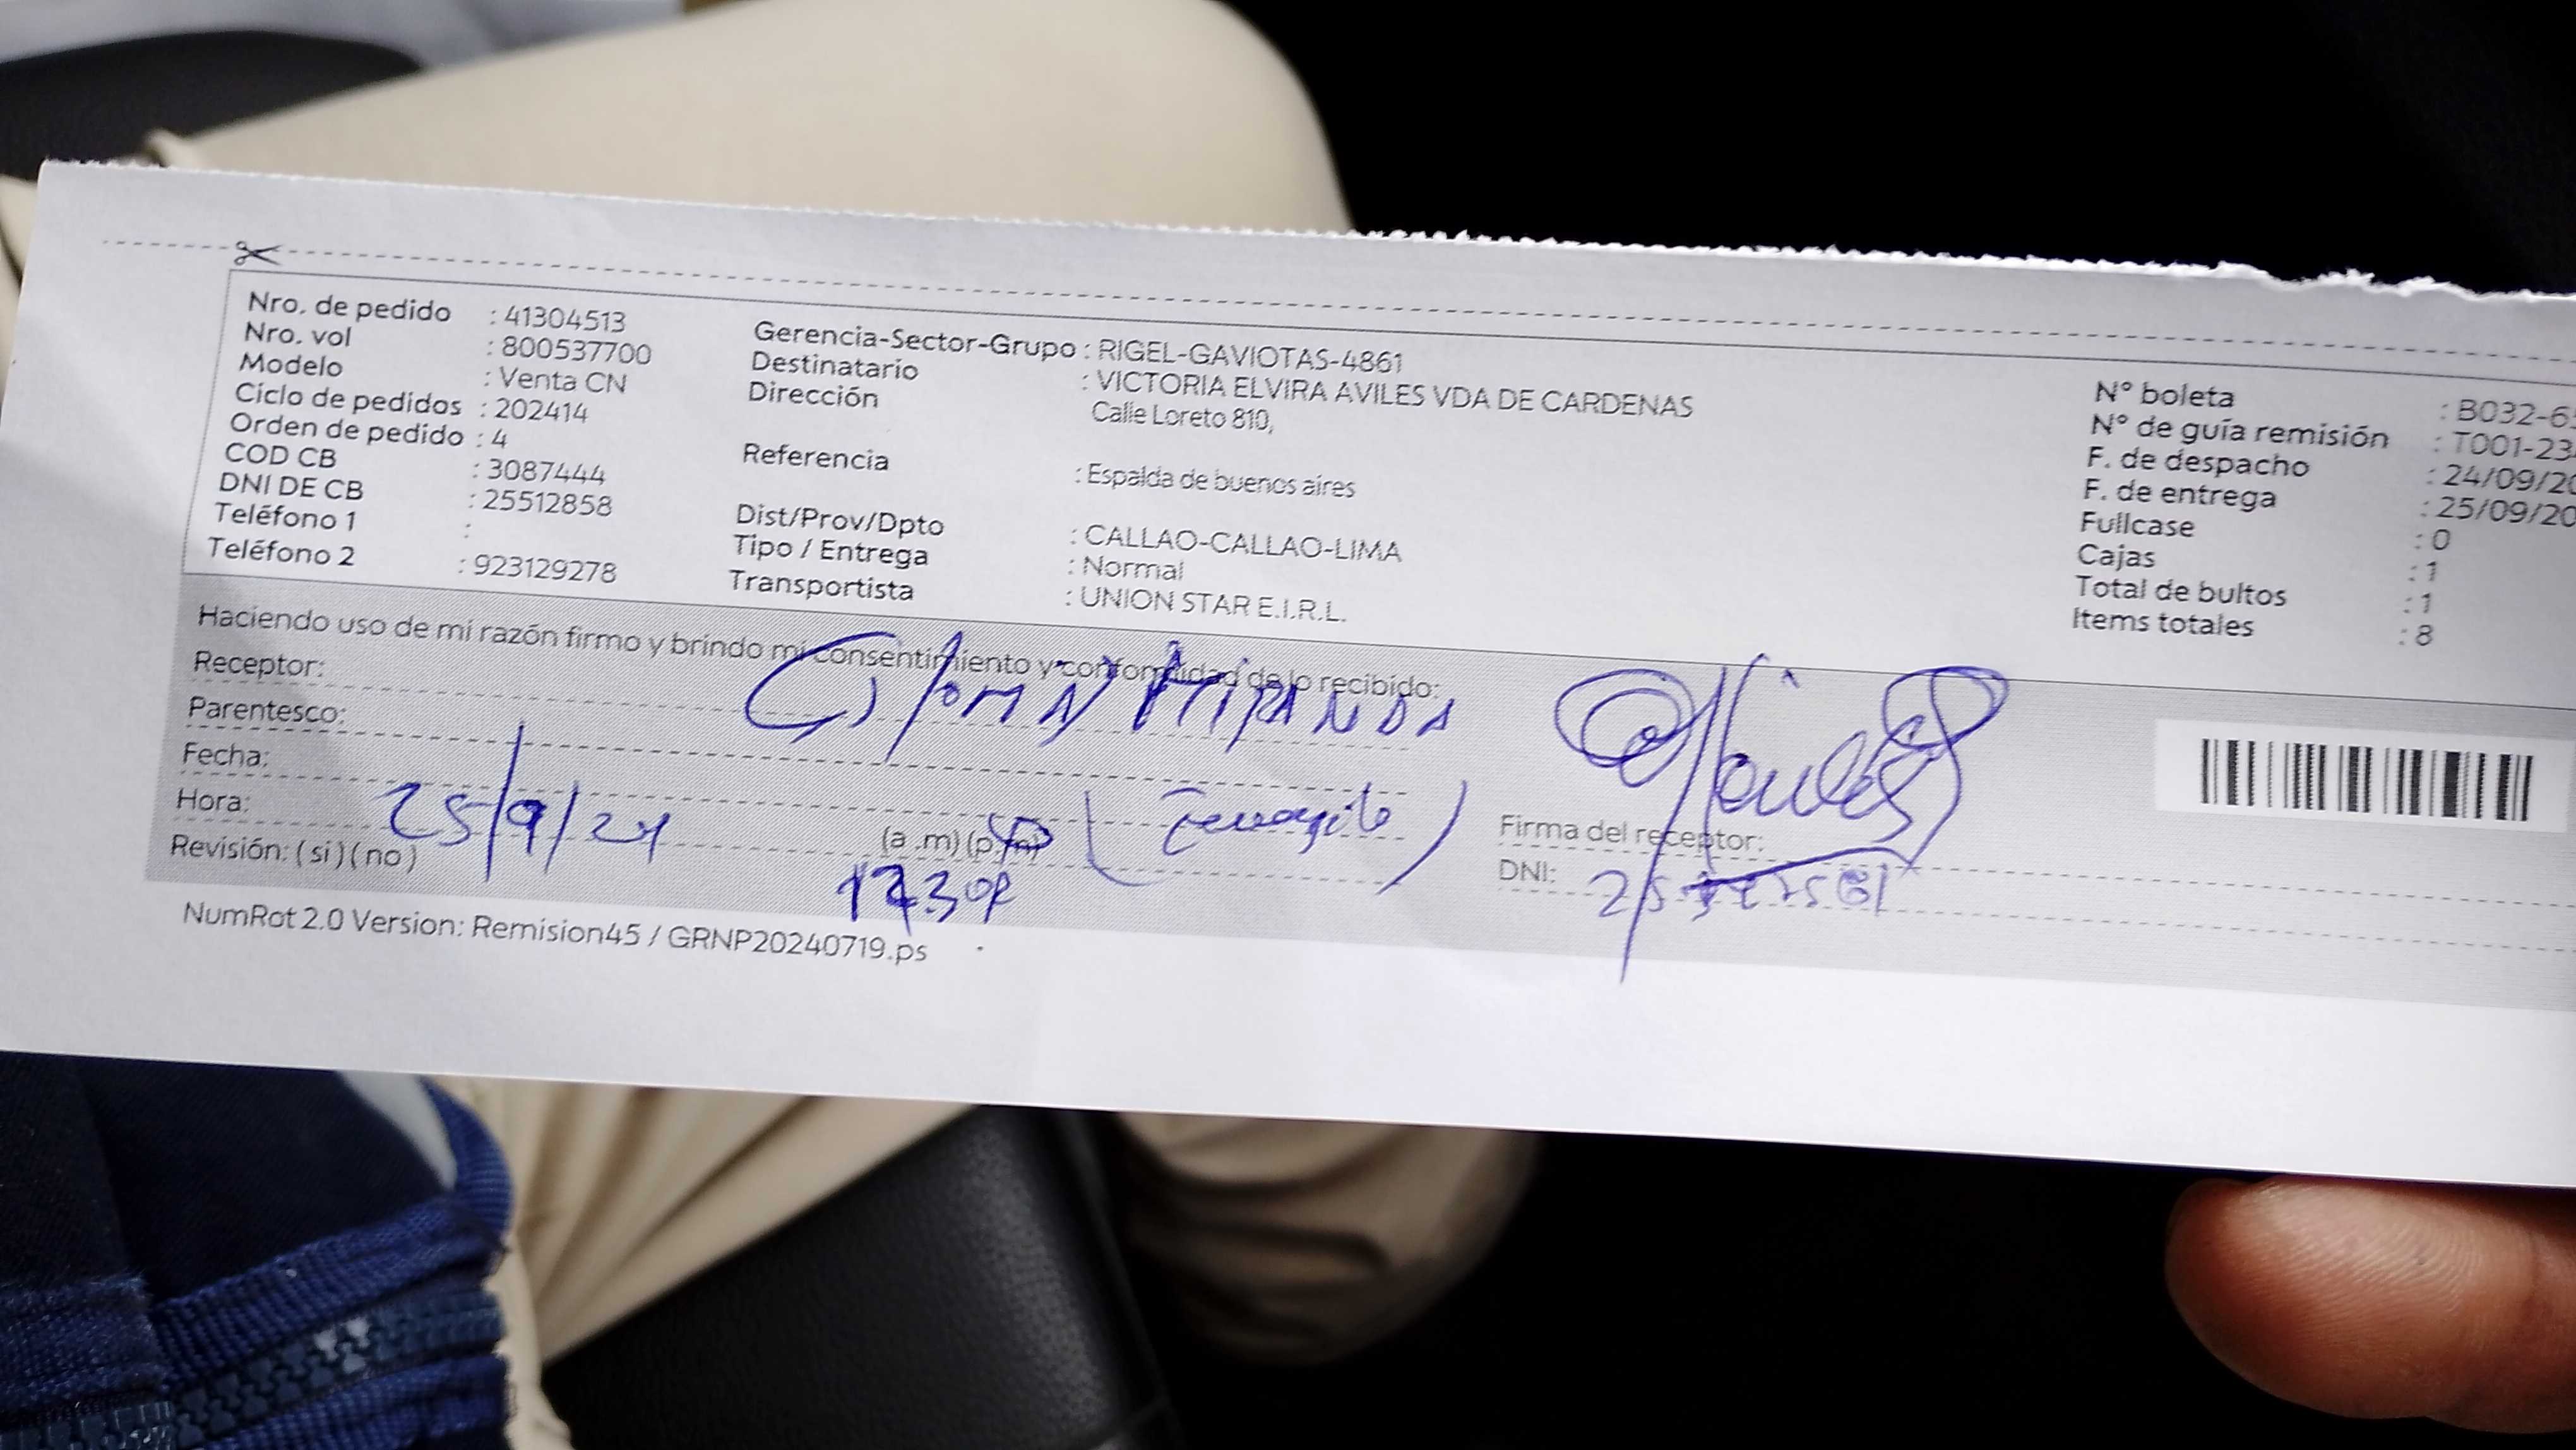 Nro. de pedido : 41304513
Nro. vol : 800537700
Modelo : Venta CN
Ciclo de pedidos : 202414
Orden de pedido : 4
COD CB : 3087444
DNI DE CB : 25512858
Teléfono 1 :
Teléfono 2 : 923129278
Gerencia-Sector-Grupo : RIGEL-GAVIOTAS-4861
Destinatario : VICTORIA ELVIRA AVILES VDA DE CARDENAS
Dirección Calle Loreto 810,
Referencia : Espalda de buenos aires
Dist/Prov/Dpto : CALLAO-CALLAO-LIMA
Tipo / Entrega : Normal
Transportista : UNION STAR E.I.R.L.
N° boleta : B032-6
N° de guía remisión : T001-23
F. de despacho : 24/09/20
F. de entrega : 25/09/20
Fullcase : 0
Cajas : 1
Total de bultos : 1
Items totales : 8
Haciendo uso de mi razón firmo y brindo mi consentimiento y conformidad de lo recibido:
Receptor: MIRANDA
Parentesco:
Fecha: 25/9/24
Hora: (a.m)(p.m)
Revisión: (si)(no)
Firma del receptor:
DNI:
NumRot 2.0 Version: Remision45 / GRNP20240719.ps